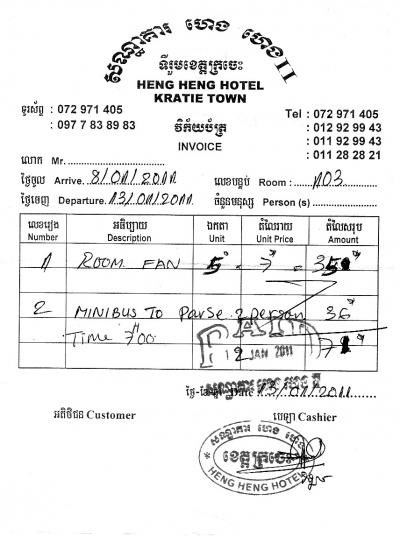 សណ្ឋាគារ ហេង ហេង II
ទីរួមខេត្តក្រចេះ
HENG HENG HOTEL
KRATIE TOWN
ទូរស័ព្ទ : 072 971 405
: 097 7 83 89 83
Tel : 072 971 405
: 012 92 99 43
: 011 92 99 43
: 011 28 28 21
វិក័យប័ត្រ
INVOICE
លោក Mr.
ថ្ងៃចូល Arrive. 8/01/2011
លេខបន្ទប់ Room : 103
ថ្ងៃចេញ Departure. 13/01/2011
ចំនួនមនុស្ស Person (s)
លេខរៀង អធិប្បាយ ឯកតា តំលៃរាយ តំលៃសរុប
Number Description Unit Unit Price Amount
1 ROOM FAN 5 7 = 35$
2 MINIBUS TO Parse 2 person 36$
Time 7H00
71$
PAID
2 JAN 2011
Date 13/01/2011
អតិថិជន Customer
បេឡា Cashier
សណ្ឋាគារ ហេង ហេង
ខេត្តក្រចេះ
HENG HENG HOTEL